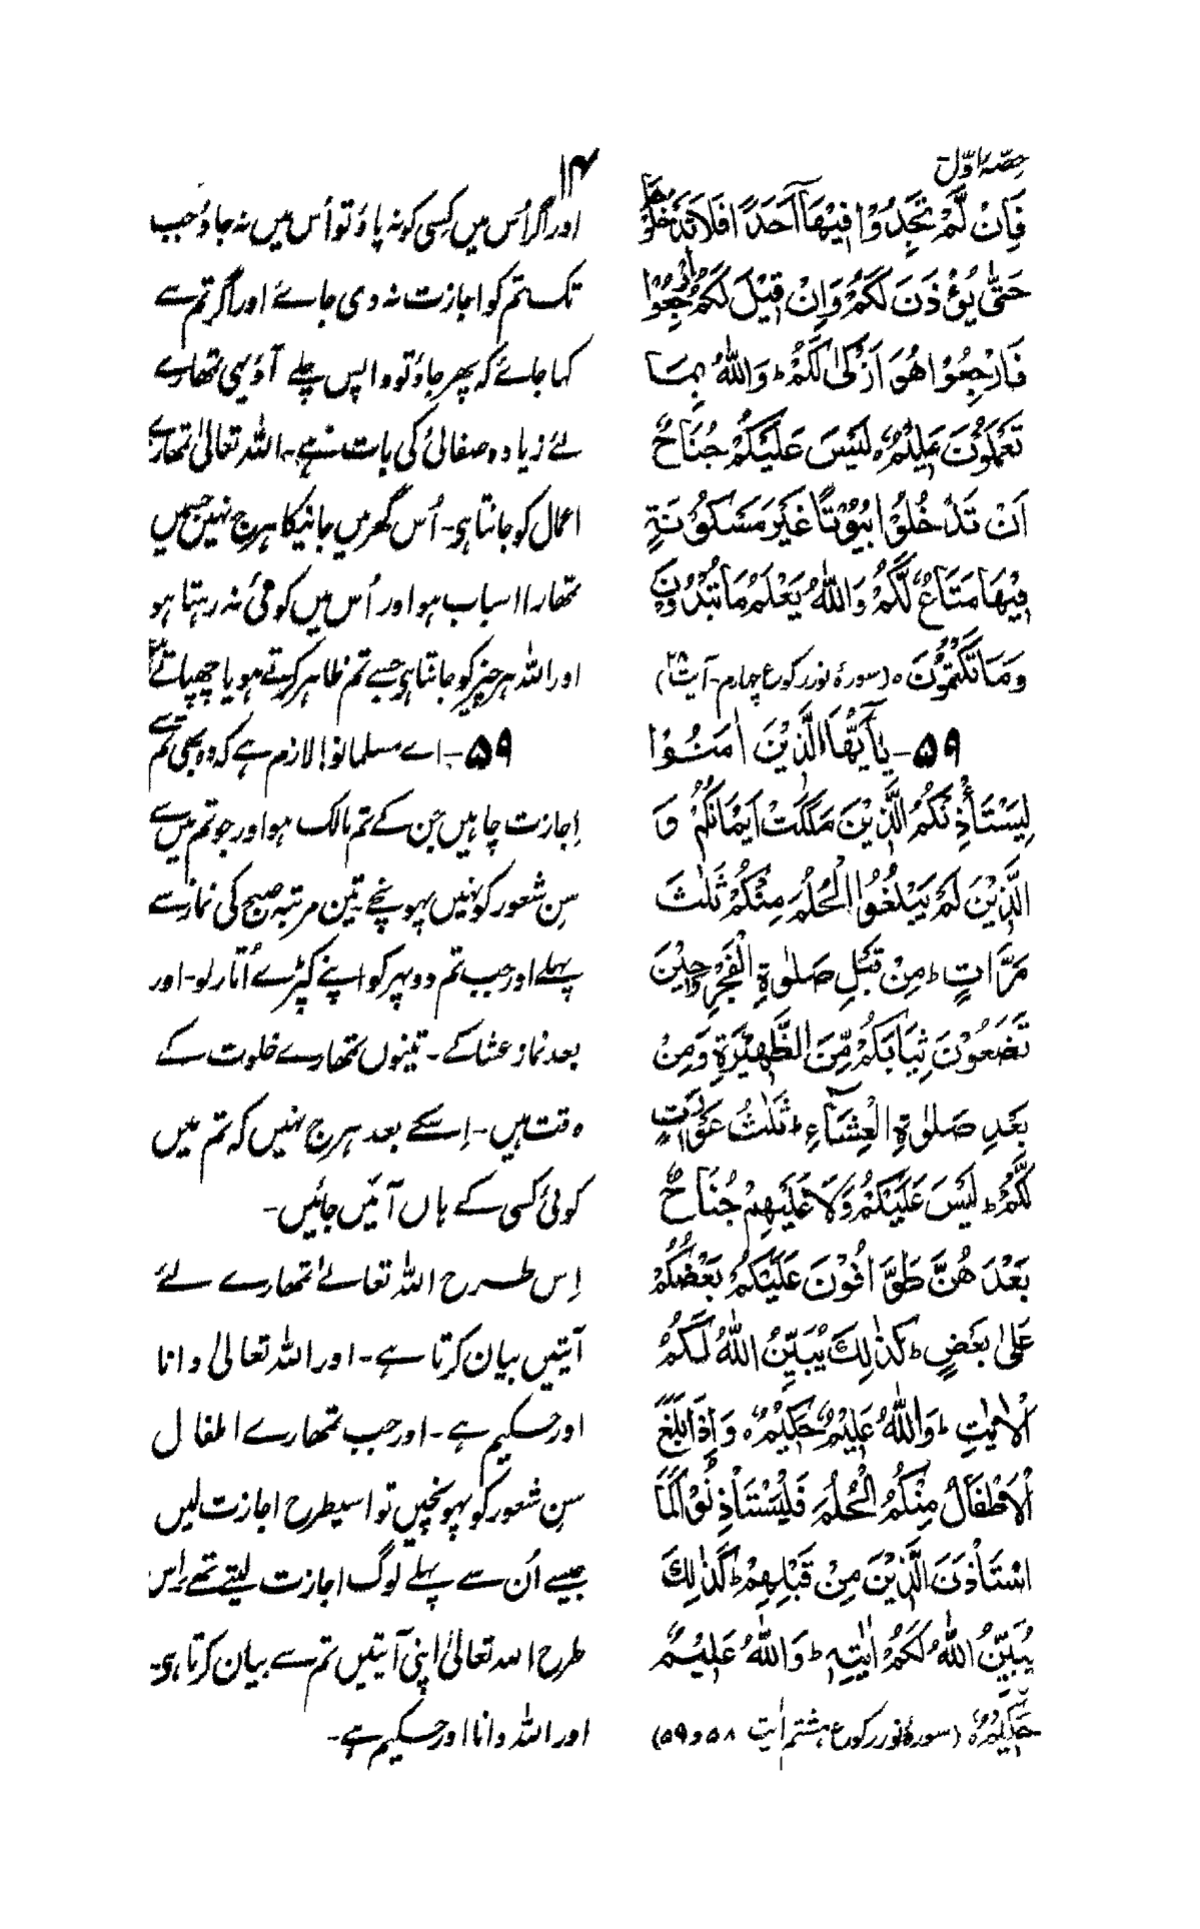 حصّہ اوّل
۱۴
فَاِنْ لَّمْ تَجِدُوْا فِیْهَاۤ اَحَدًا فَلَا تَدْخُلُوْهَا
حَتّٰی یُؤْذَنَ لَكُمْ وَاِنْ قِیْلَ لَكُمُ ارْجِعُوْا
فَارْجِعُوْا هُوَ اَزْكٰی لَكُمْ ؕ وَاللّٰهُ بِمَا
تَعْمَلُوْنَ عَلِیْمٌ ہ لَیْسَ عَلَیْكُمْ جُنَاحٌ
اَنْ تَدْخُلُوْا بُیُوْتًا غَیْرَ مَسْكُوْنَةٍ
فِیْهَا مَتَاعٌ لَّكُمْ وَاللّٰهُ یَعْلَمُ مَا تُبْدُوْنَ
وَمَا تَكْتُمُوْنَ ہ (سورۂ نور رکوع چہارم۔ آیت ۲۸)
۵۹۔ یٰۤاَیُّهَا الَّذِیْنَ اٰمَنُوْا
لِیَسْتَاْذِنْكُمُ الَّذِیْنَ مَلَكَتْ اَیْمَانُكُمْ وَ
الَّذِیْنَ لَمْ یَبْلُغُوا الْحُلُمَ مِنْكُمْ ثَلٰثَ
مَرَّاتٍ ؕ مِنْ قَبْلِ صَلٰوةِ الْفَجْرِ وَحِیْنَ
تَضَعُوْنَ ثِیَابَكُمْ مِّنَ الظَّهِیْرَةِ وَمِنْ
بَعْدِ صَلٰوةِ الْعِشَآءِ ؕ ثَلٰثُ عَوْرَاتٍ
لَّكُمْ ؕ لَیْسَ عَلَیْكُمْ وَلَا عَلَیْهِمْ جُنَاحٌ
بَعْدَ هُنَّ طَوَّافُوْنَ عَلَیْكُمْ بَعْضُكُمْ
عَلٰی بَعْضٍ ؕ كَذٰلِكَ یُبَیِّنُ اللّٰهُ لَكُمُ
الْاٰیٰتِ ؕ وَاللّٰهُ عَلِیْمٌ حَكِیْمٌ ہ وَاِذَا بَلَغَ
الْاَطْفَالُ مِنْكُمُ الْحُلُمَ فَلْیَسْتَاْذِنُوْا كَمَا
اسْتَاْذَنَ الَّذِیْنَ مِنْ قَبْلِهِمْ ؕ كَذٰلِكَ
یُبَیِّنُ اللّٰهُ لَكُمْ اٰیٰتِهٖ ؕ وَاللّٰهُ عَلِیْمٌ
حَكِیْمٌ ہ (سورۂ نور رکوع ہشتم اٰیت ۵۸ و ۵۹)
اور اگر اُس میں کِسی کو نہ پاؤ تو اُس میں نہ جاؤ جب
تک تم کو اجازت نہ دی جائے اور اگر تم سے
کہا جائے کہ پھر جاؤ تو واپس چلے آؤ یہی تمھارے
لئے زیادہ صفائی کی بات ہے۔ اللہ تعالیٰ تمھارے
اعمال کو جانتا ہی۔ اُس گھر میں جانیکا ہرج نہیں جسمیں
تمھارا اسباب ہو اور اُس میں کوئی نہ رہتا ہو
اور اللہ ہر چیز کو جانتا ہی جسے تم ظاہر کرتے ہو یا چھپاتے
۵۹۔ اے مسلمانو! لازم ہے کہ وہ بھی تم سے
اِجازت چاہیں جن کے تم مالک ہو اور جو تم میں سے
سِن شعور کو نہیں پہونچے۔ تین مرتبہ صبح کی نماز سے
پہلے اور جب تم دوپہر کو اپنے کپڑے اُتار لو۔ اور
بعد نماز عشا کے۔ تینوں تمھارے خلوت کے
وقت ہیں۔ اِسکے بعد ہرج نہیں کہ تم میں
کوئی کسی کے ہاں آئیں جائیں۔
اِس طرح اللہ تعالےٰ تمھارے لئے
آیتیں بیان کرتا ہے۔ اور اللہ تعالیٰ دانا
اور حکیم ہے۔ اور جب تمھارے اطفال
سِن شعور کو پہونچیں تو اسیطرح اجازت لیں
جیسے اُن سے پہلے لوگ اجازت لیتے تھے اِس
طرح اللہ تعالیٰ اپنی آیتیں تم سے بیان کرتا ہی۔
اور اللہ دانا اور حکیم ہے۔